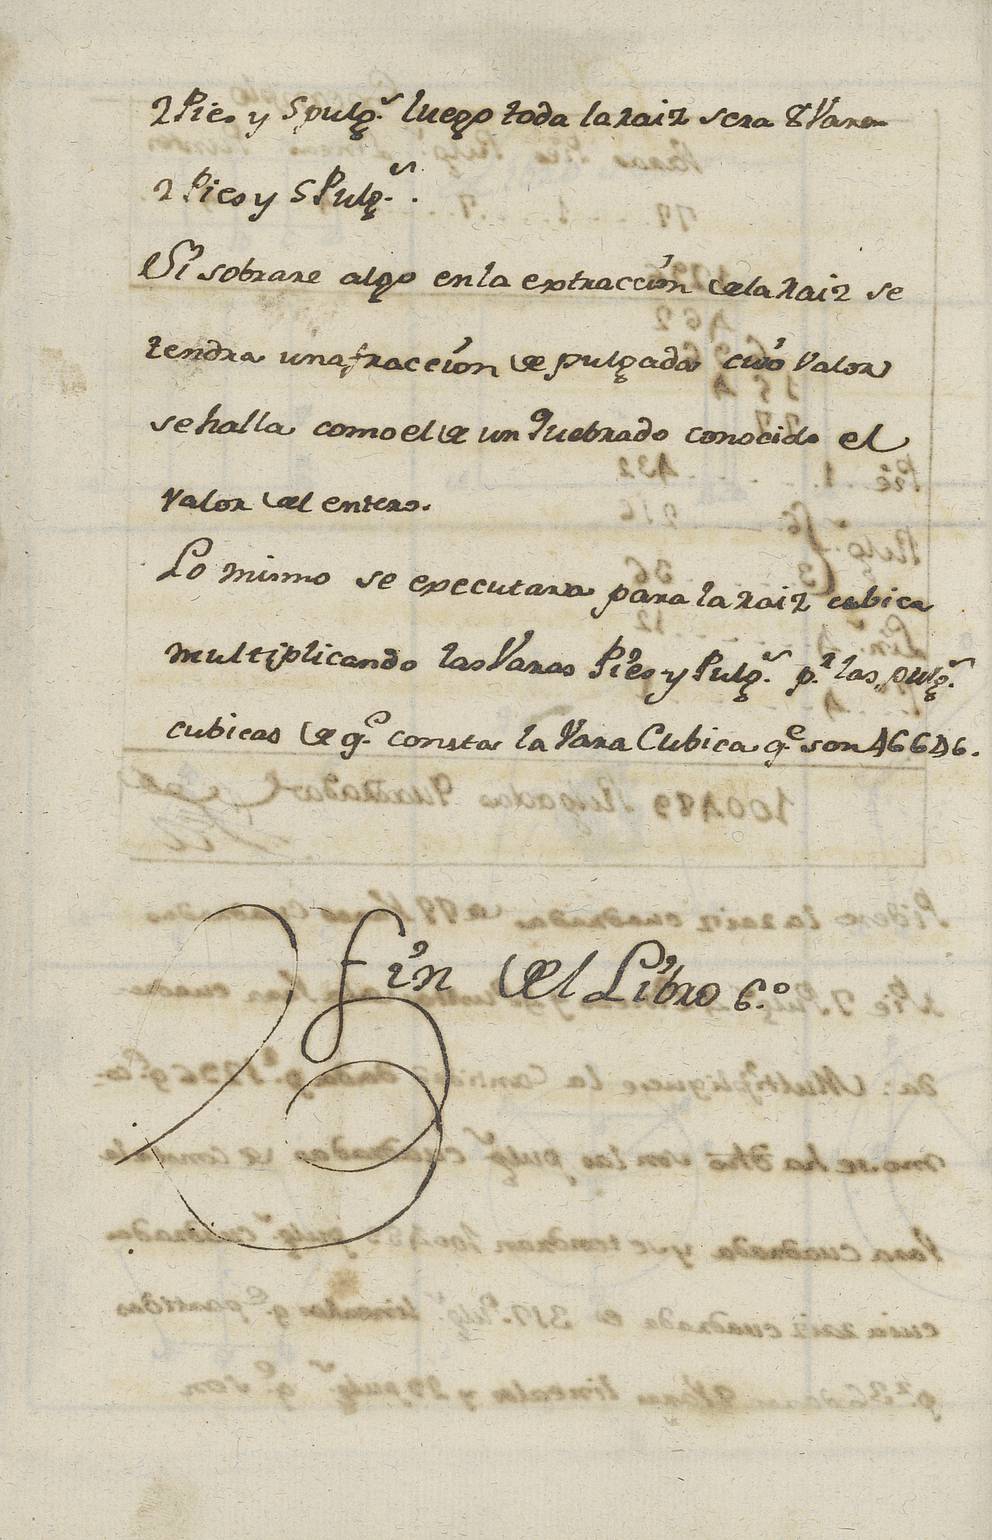 2 Pies y 5 pulg.s luego toda la raiz sera 8 Varas
2 Pies y 5 Pulg.s.
Si sobrare algo en la extracción de la raiz se
tendra una fracción de pulgada cuio valor
se halla como el de un Quebrado conocido el
valor del entero.
Lo mismo se executara para la raiz cubica
multiplicando las Varas Pies y Pulg.s p.r las pulg.s
cubicas de q.e consta la Vara Cubica q.e son 46646.
Fin del Libro 6.o